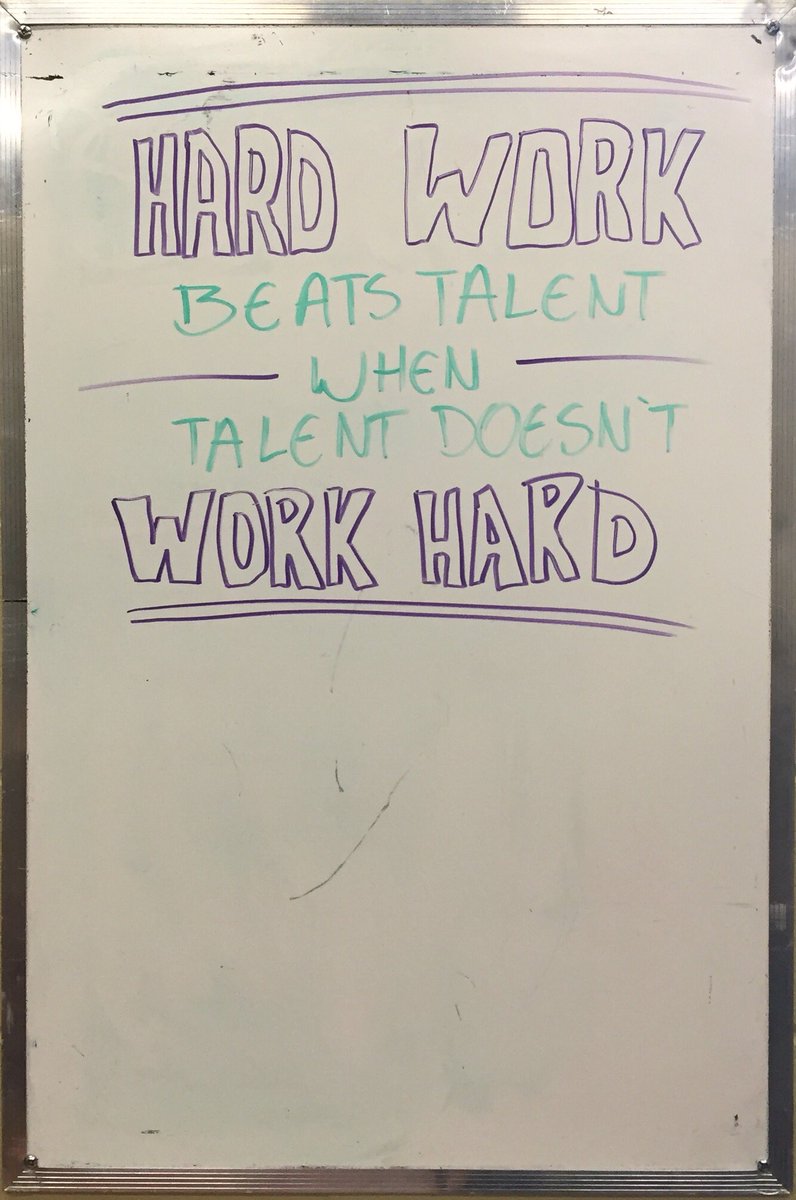 HARD WORK
BEATS TALENT
WHEN
TALENT DOESN'T
WORK HARD